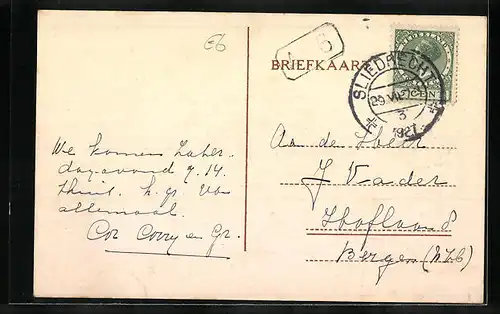 E6
6
BRIEFKAART
SLIEDRECHT
29.VII.27
3
1927
CEN
We komen Zater-
dagavond 9.14
thuis. h. gr. van
allemaal.
Cor Corry en Gr.
Aan de Heer
J Vader
Hofland 8
Bergen (N.Z.6)